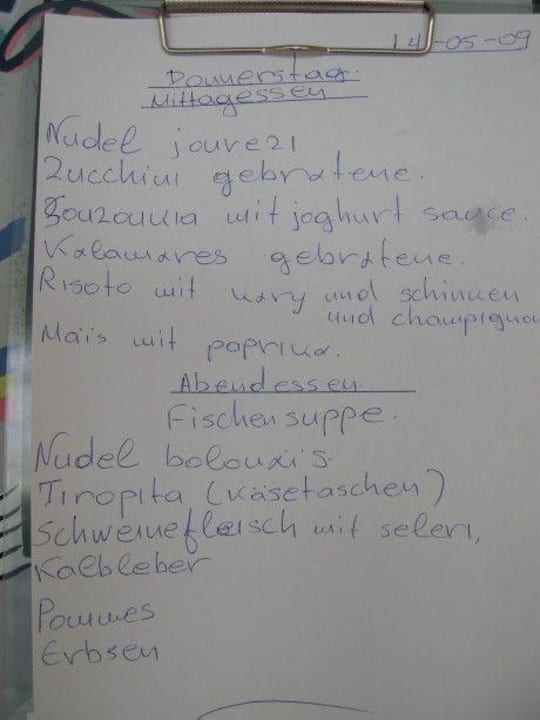 14-05-09
Donnerstag.
Mittagessen
Nudel jouvezi
Zucchini gebratene.
Souzoukia mit joghurt sauce.
Kalamares gebratene.
Risoto mit kary und schinken
und champigno
Mais mit paprika.
Abendessen
Fischensuppe.
Nudel bolonais.
Tiropita (Käsetaschen)
Schweinefleisch mit seleri,
Kalbleber
Pommes
Erbsen